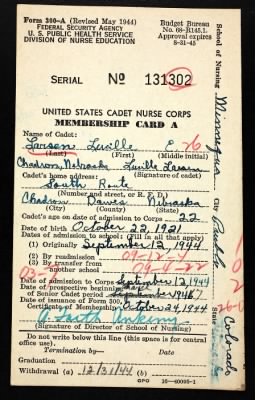 Form 300-A (Revised May 1944)
FEDERAL SECURITY AGENCY
U. S. PUBLIC HEALTH SERVICE
DIVISION OF NURSE EDUCATION
Budget Bureau
No. 68-R145.1.
Approval expires
8-31-45
SERIAL No 131302
UNITED STATES CADET NURSE CORPS
MEMBERSHIP CARD A
Name of Cadet:
Larsen Luville E. 26
(Last) (First) (Middle initial)
Chadron, Nebraska Luville Larsen
Cadet's home address: (Signature of cadet)
South Route
(Number and street, or R. F. D.)
Chadron Dawes Nebraska
(City) (County) (State)
Cadet's age on date of admission to Corps 22
Date of birth October 22, 1921
Dates of admission to school: (Fill in all that apply)
(1) Originally September 12, 1944
(2) By readmission 09-12-4
(3) By transfer from
another school 09-4-22
03-
Date of admission to Corps September 12, 1944
Date of prospective beginning
of Senior Cadet period September 1946
Date of issuance of Form 300,
Certificate of Membership October 24, 1944
(Signature of Director of School of Nursing)
Termination by— Date
Graduation
Withdrawal (a) 12/31/44 (b)
GPO 16-40095-1
School of Nursing Minnequa
City Pueblo
State Colorado